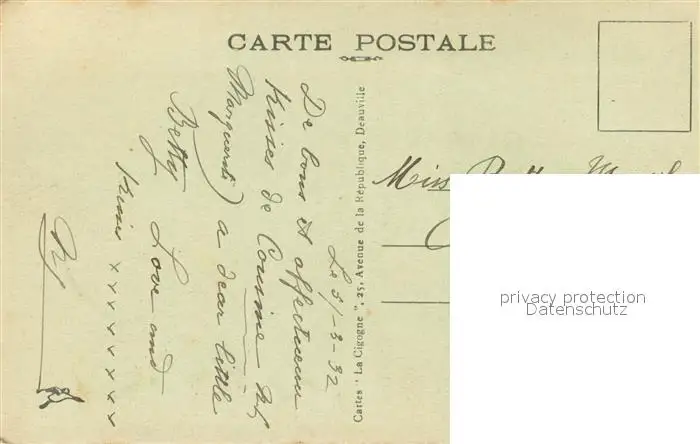 CARTE POSTALE
Cartes "La Cigogne", 25, Avenue de la République, Deauville
Le 31-3-32
De bons et affectueux
Kisses de Cousine
Marguerite) a dear little
Betty Love and
Kisses x x x x x x x x
Miss
privacy protection
Datenschutz